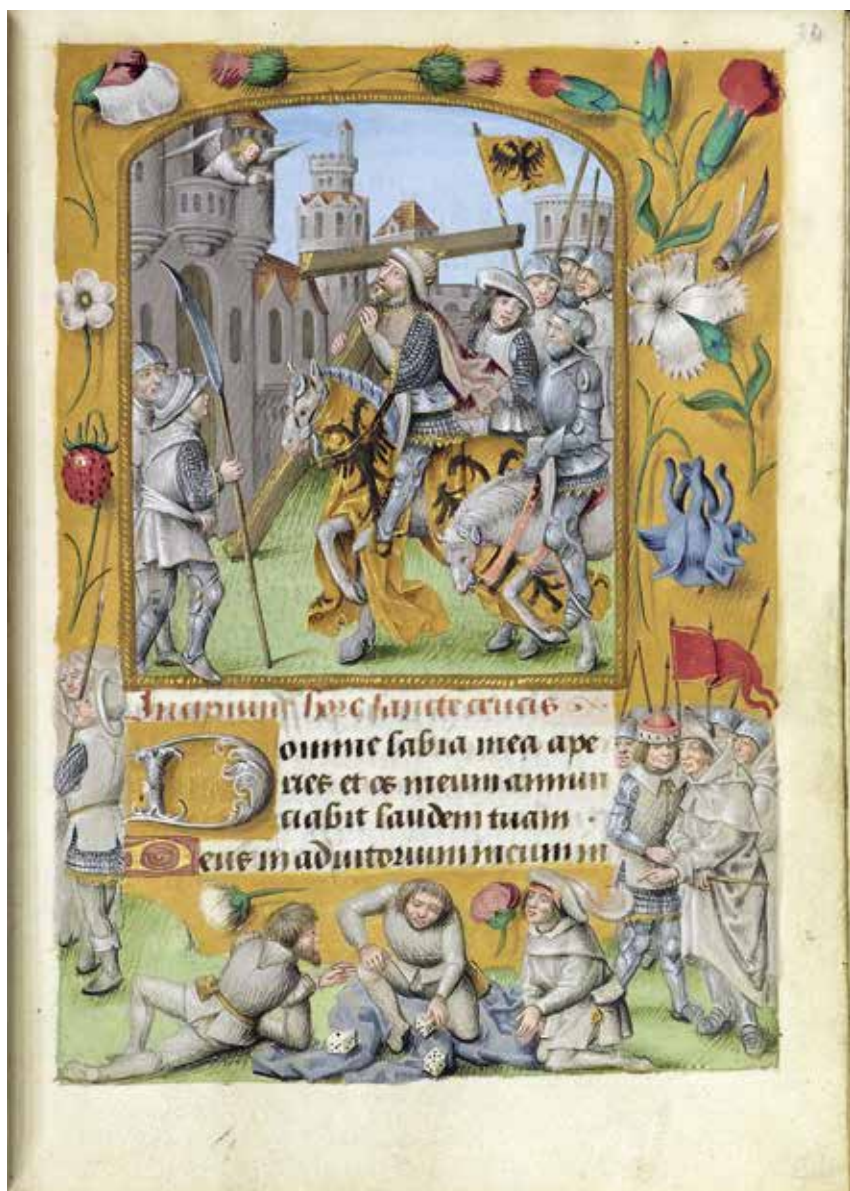 Incipiunt hore sancte crucis
Domine labia mea ape
ries et os meum annun
ciabit laudem tuam ·
Deus in adiutorium meum in